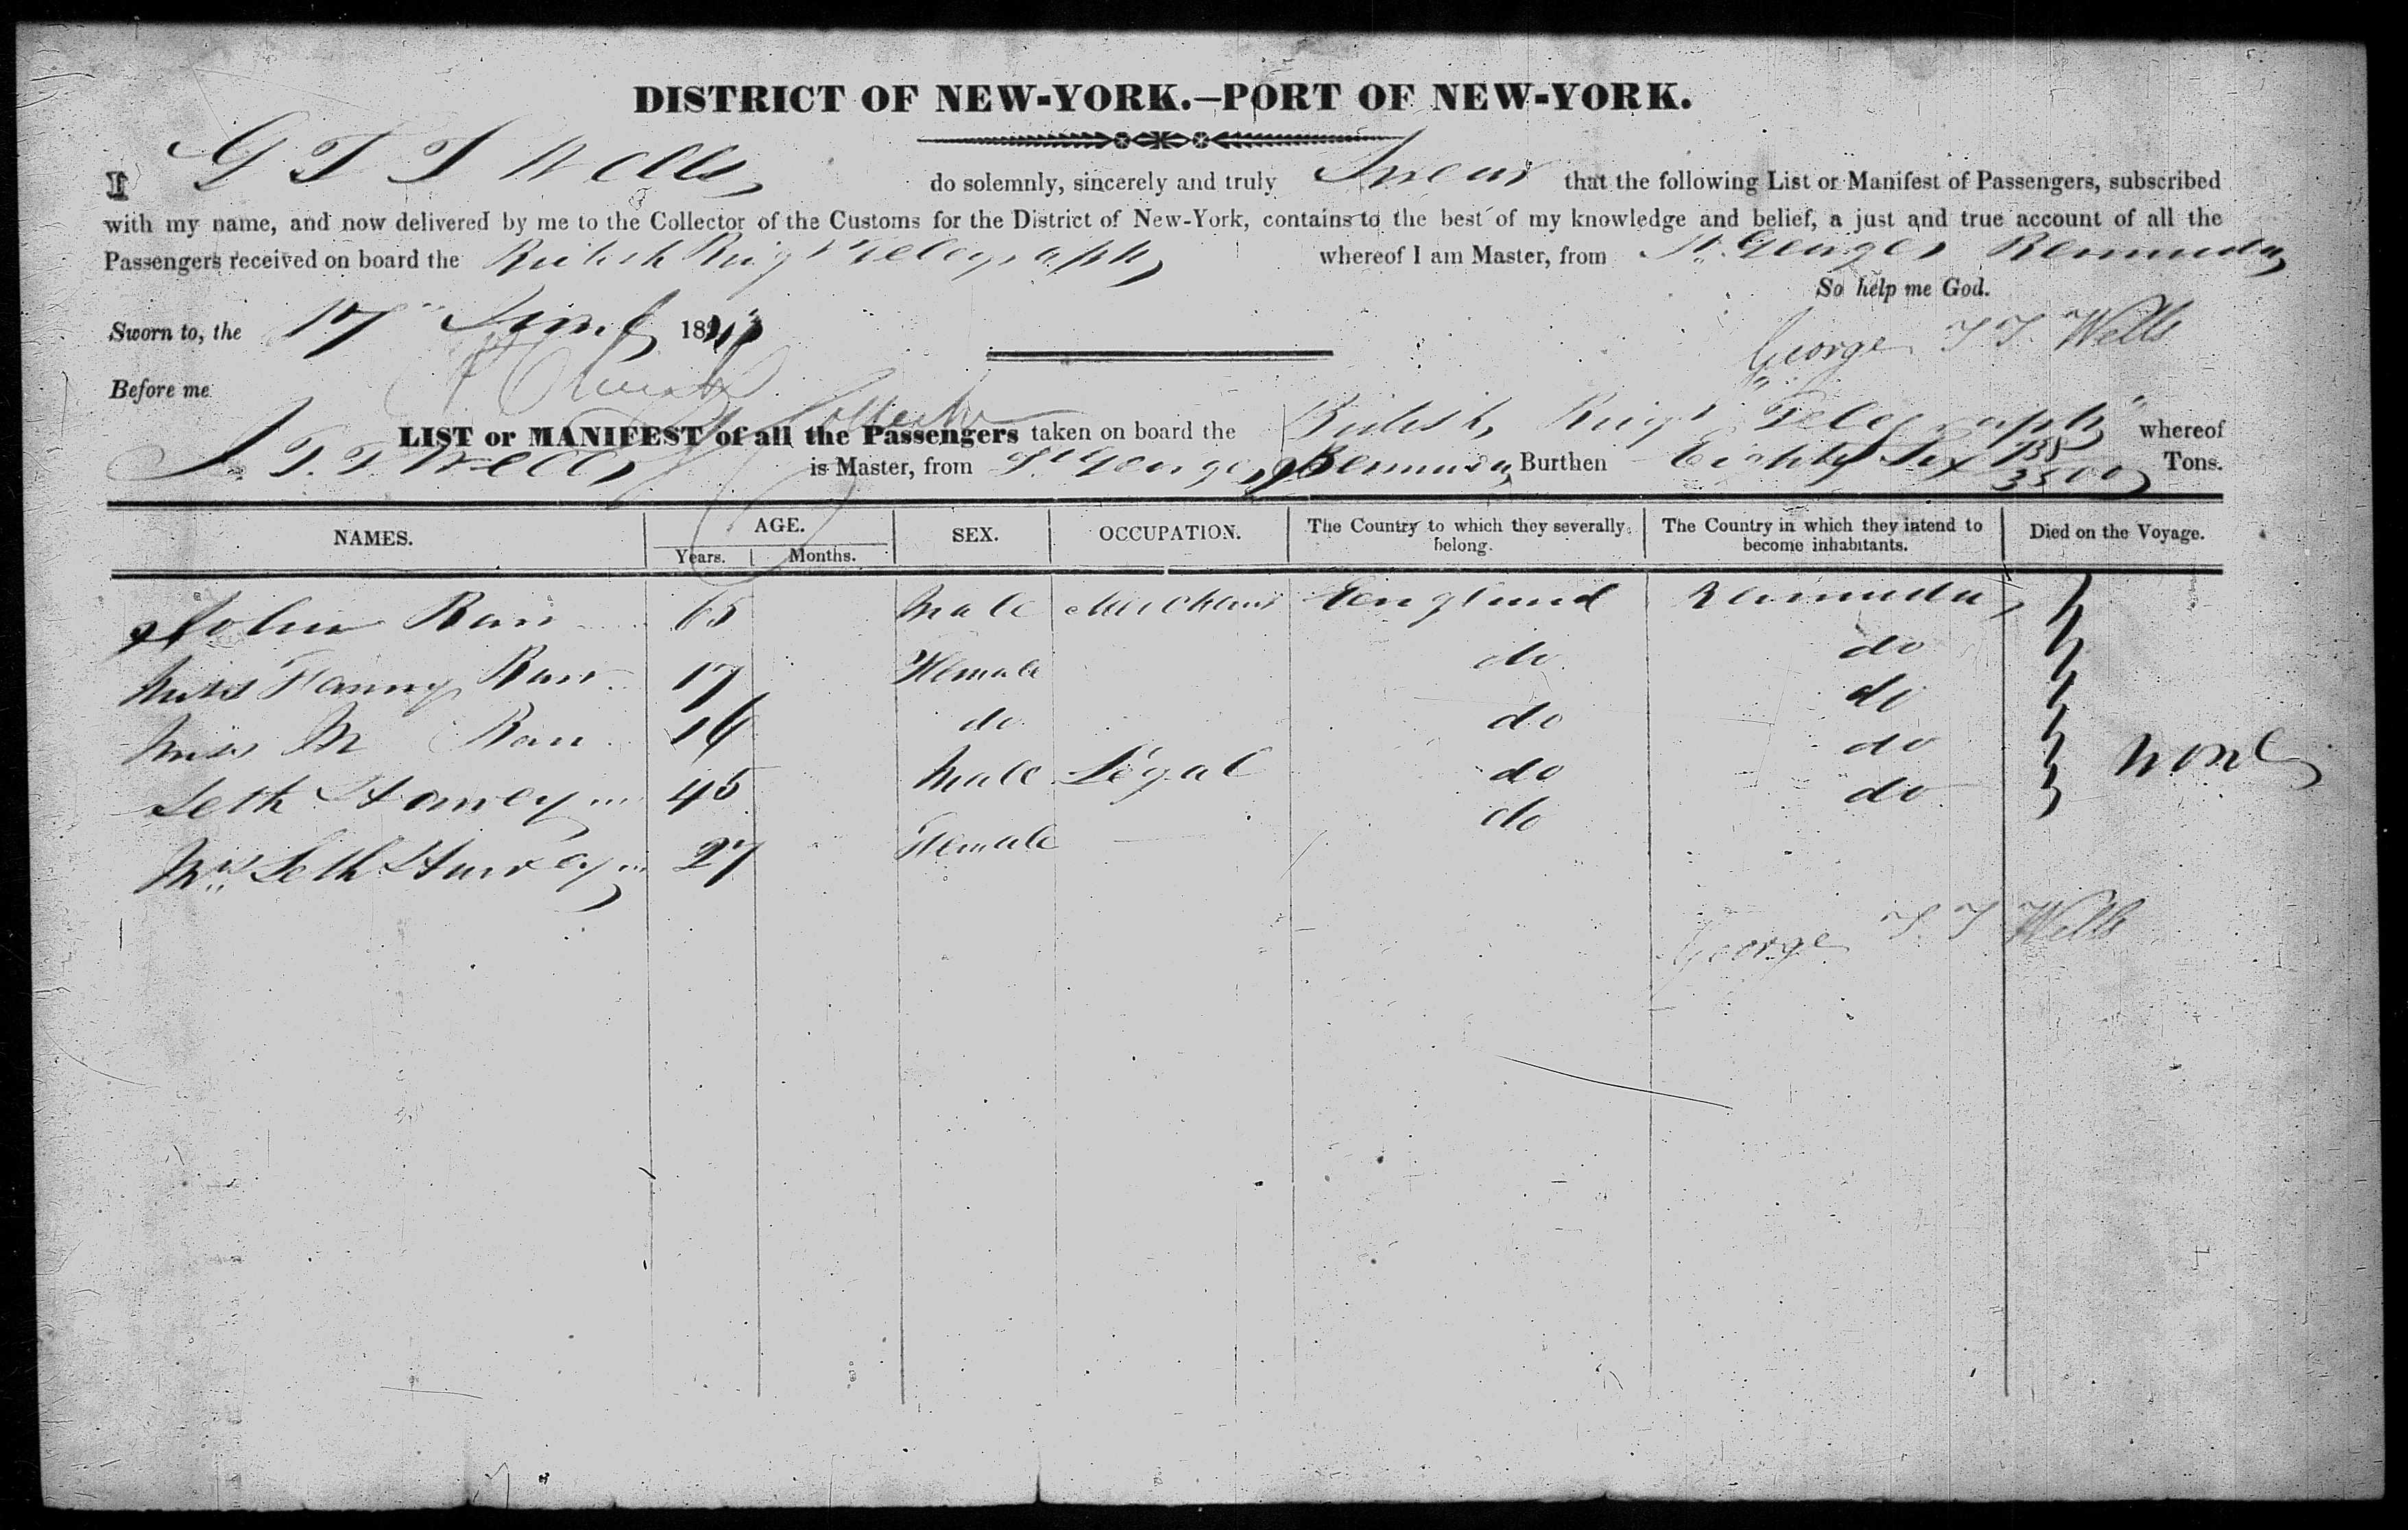 DISTRICT OF NEW-YORK.—PORT OF NEW-YORK.
I G T T Wells do solemnly, sincerely and truly Swear that the following List or Manifest of Passengers, subscribed
with my name, and now delivered by me to the Collector of the Customs for the District of New-York, contains to the best of my knowledge and belief, a just and true account of all the
Passengers received on board the British Brig Telegraph whereof I am Master, from St. Georges Bermuda
So help me God.
Sworn to, the 17 June 184
George T T Wells
Before me
Collector
LIST or MANIFEST of all the Passengers taken on board the British Brig Telegraph whereof
T. T Wells is Master, from St Georges Bermuda Burthen Eighty Six Tons.
NAMES. AGE. SEX. OCCUPATION. The Country to which they severally belong. The Country in which they intend to become inhabitants. Died on the Voyage.
Years. Months.
John 65 Male Merchant England Bermuda
Miss Fanny 17 Female do do
Miss M 16 do do do
Seth Harvey 45 Male Legal do do none
Mrs Seth Harvey 27 Female do do
George T T Wells